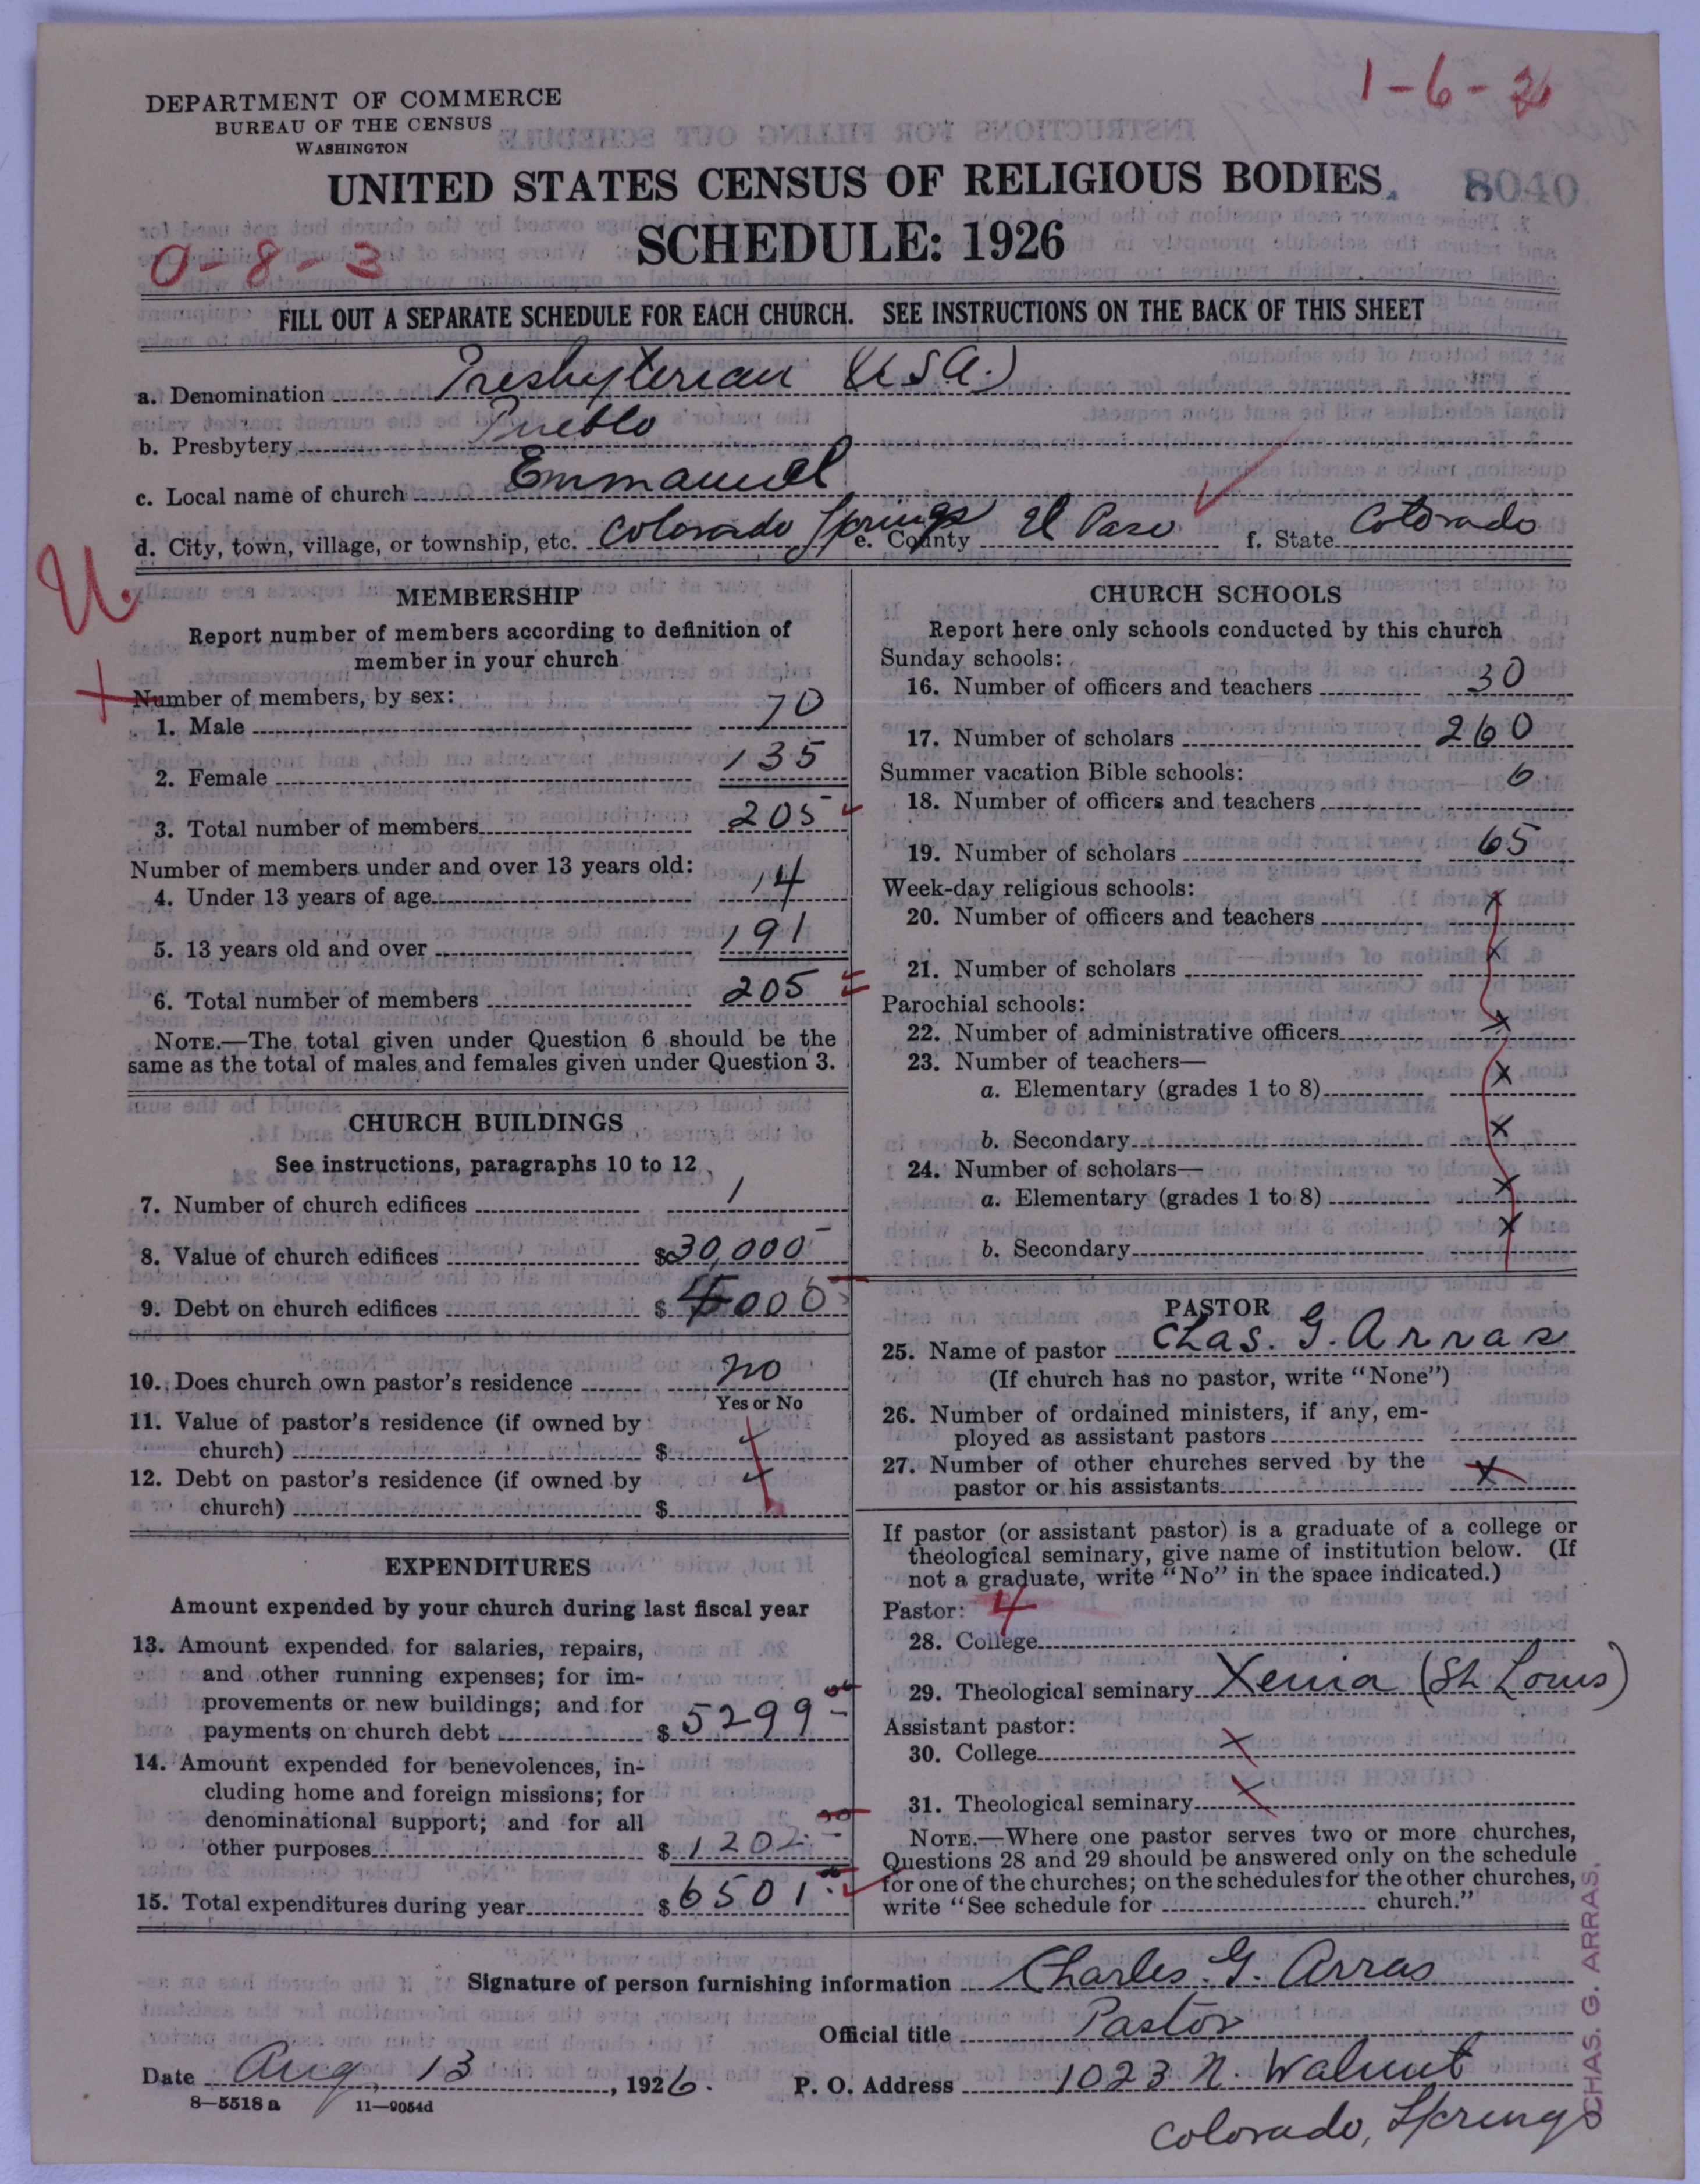 DEPARTMENT OF COMMERCE
BUREAU OF THE CENSUS
WASHINGTON
1-6-26
UNITED STATES CENSUS OF RELIGIOUS BODIES
8040
SCHEDULE: 1926
0-8-3
FILL OUT A SEPARATE SCHEDULE FOR EACH CHURCH. SEE INSTRUCTIONS ON THE BACK OF THIS SHEET
a. Denomination Presbyterian (U.S.A.)
b. Presbytery Pueblo
c. Local name of church Emmanuel
d. City, town, village, or township, etc. Colorado Springs e. County El Paso f. State Colorado
U.
MEMBERSHIP
Report number of members according to definition of
member in your church
Number of members, by sex:
1. Male 70
2. Female 135
3. Total number of members 205
Number of members under and over 13 years old:
4. Under 13 years of age 14
5. 13 years old and over 191
6. Total number of members 205
NOTE.—The total given under Question 6 should be the
same as the total of males and females given under Question 3.
CHURCH BUILDINGS
See instructions, paragraphs 10 to 12
7. Number of church edifices 1
8. Value of church edifices $30,000
9. Debt on church edifices $ 000
10. Does church own pastor's residence no
Yes or No
11. Value of pastor's residence (if owned by
church) $
12. Debt on pastor's residence (if owned by
church) $
EXPENDITURES
Amount expended by your church during last fiscal year
13. Amount expended for salaries, repairs,
and other running expenses; for im-
provements or new buildings; and for
payments on church debt $ 5299-
14. Amount expended for benevolences, in-
cluding home and foreign missions; for
denominational support; and for all
other purposes $ 1202.-
15. Total expenditures during year $ 6501.-
CHURCH SCHOOLS
Report here only schools conducted by this church
Sunday schools:
16. Number of officers and teachers 30
17. Number of scholars 260
Summer vacation Bible schools:
18. Number of officers and teachers 6
19. Number of scholars 65
Week-day religious schools:
20. Number of officers and teachers x
21. Number of scholars x
Parochial schools:
22. Number of administrative officers x
23. Number of teachers—
a. Elementary (grades 1 to 8) x
b. Secondary x
24. Number of scholars—
a. Elementary (grades 1 to 8) x
b. Secondary x
PASTOR
25. Name of pastor Chas. G. Arras
(If church has no pastor, write "None")
26. Number of ordained ministers, if any, em-
ployed as assistant pastors
27. Number of other churches served by the
pastor or his assistants x
If pastor (or assistant pastor) is a graduate of a college or
theological seminary, give name of institution below. (If
not a graduate, write "No" in the space indicated.)
Pastor: 4
28. College
29. Theological seminary Xenia (St. Louis)
Assistant pastor:
30. College x
31. Theological seminary x
NOTE.—Where one pastor serves two or more churches,
Questions 28 and 29 should be answered only on the schedule
for one of the churches; on the schedules for the other churches,
write "See schedule for church."
Signature of person furnishing information Charles. G. Arras
Official title Pastor
Date Aug 13, 1926. P. O. Address 1023 N. Walnut
8-5518 a 11-9054d
Colorado, Springs
CHAS. G. ARRAS.